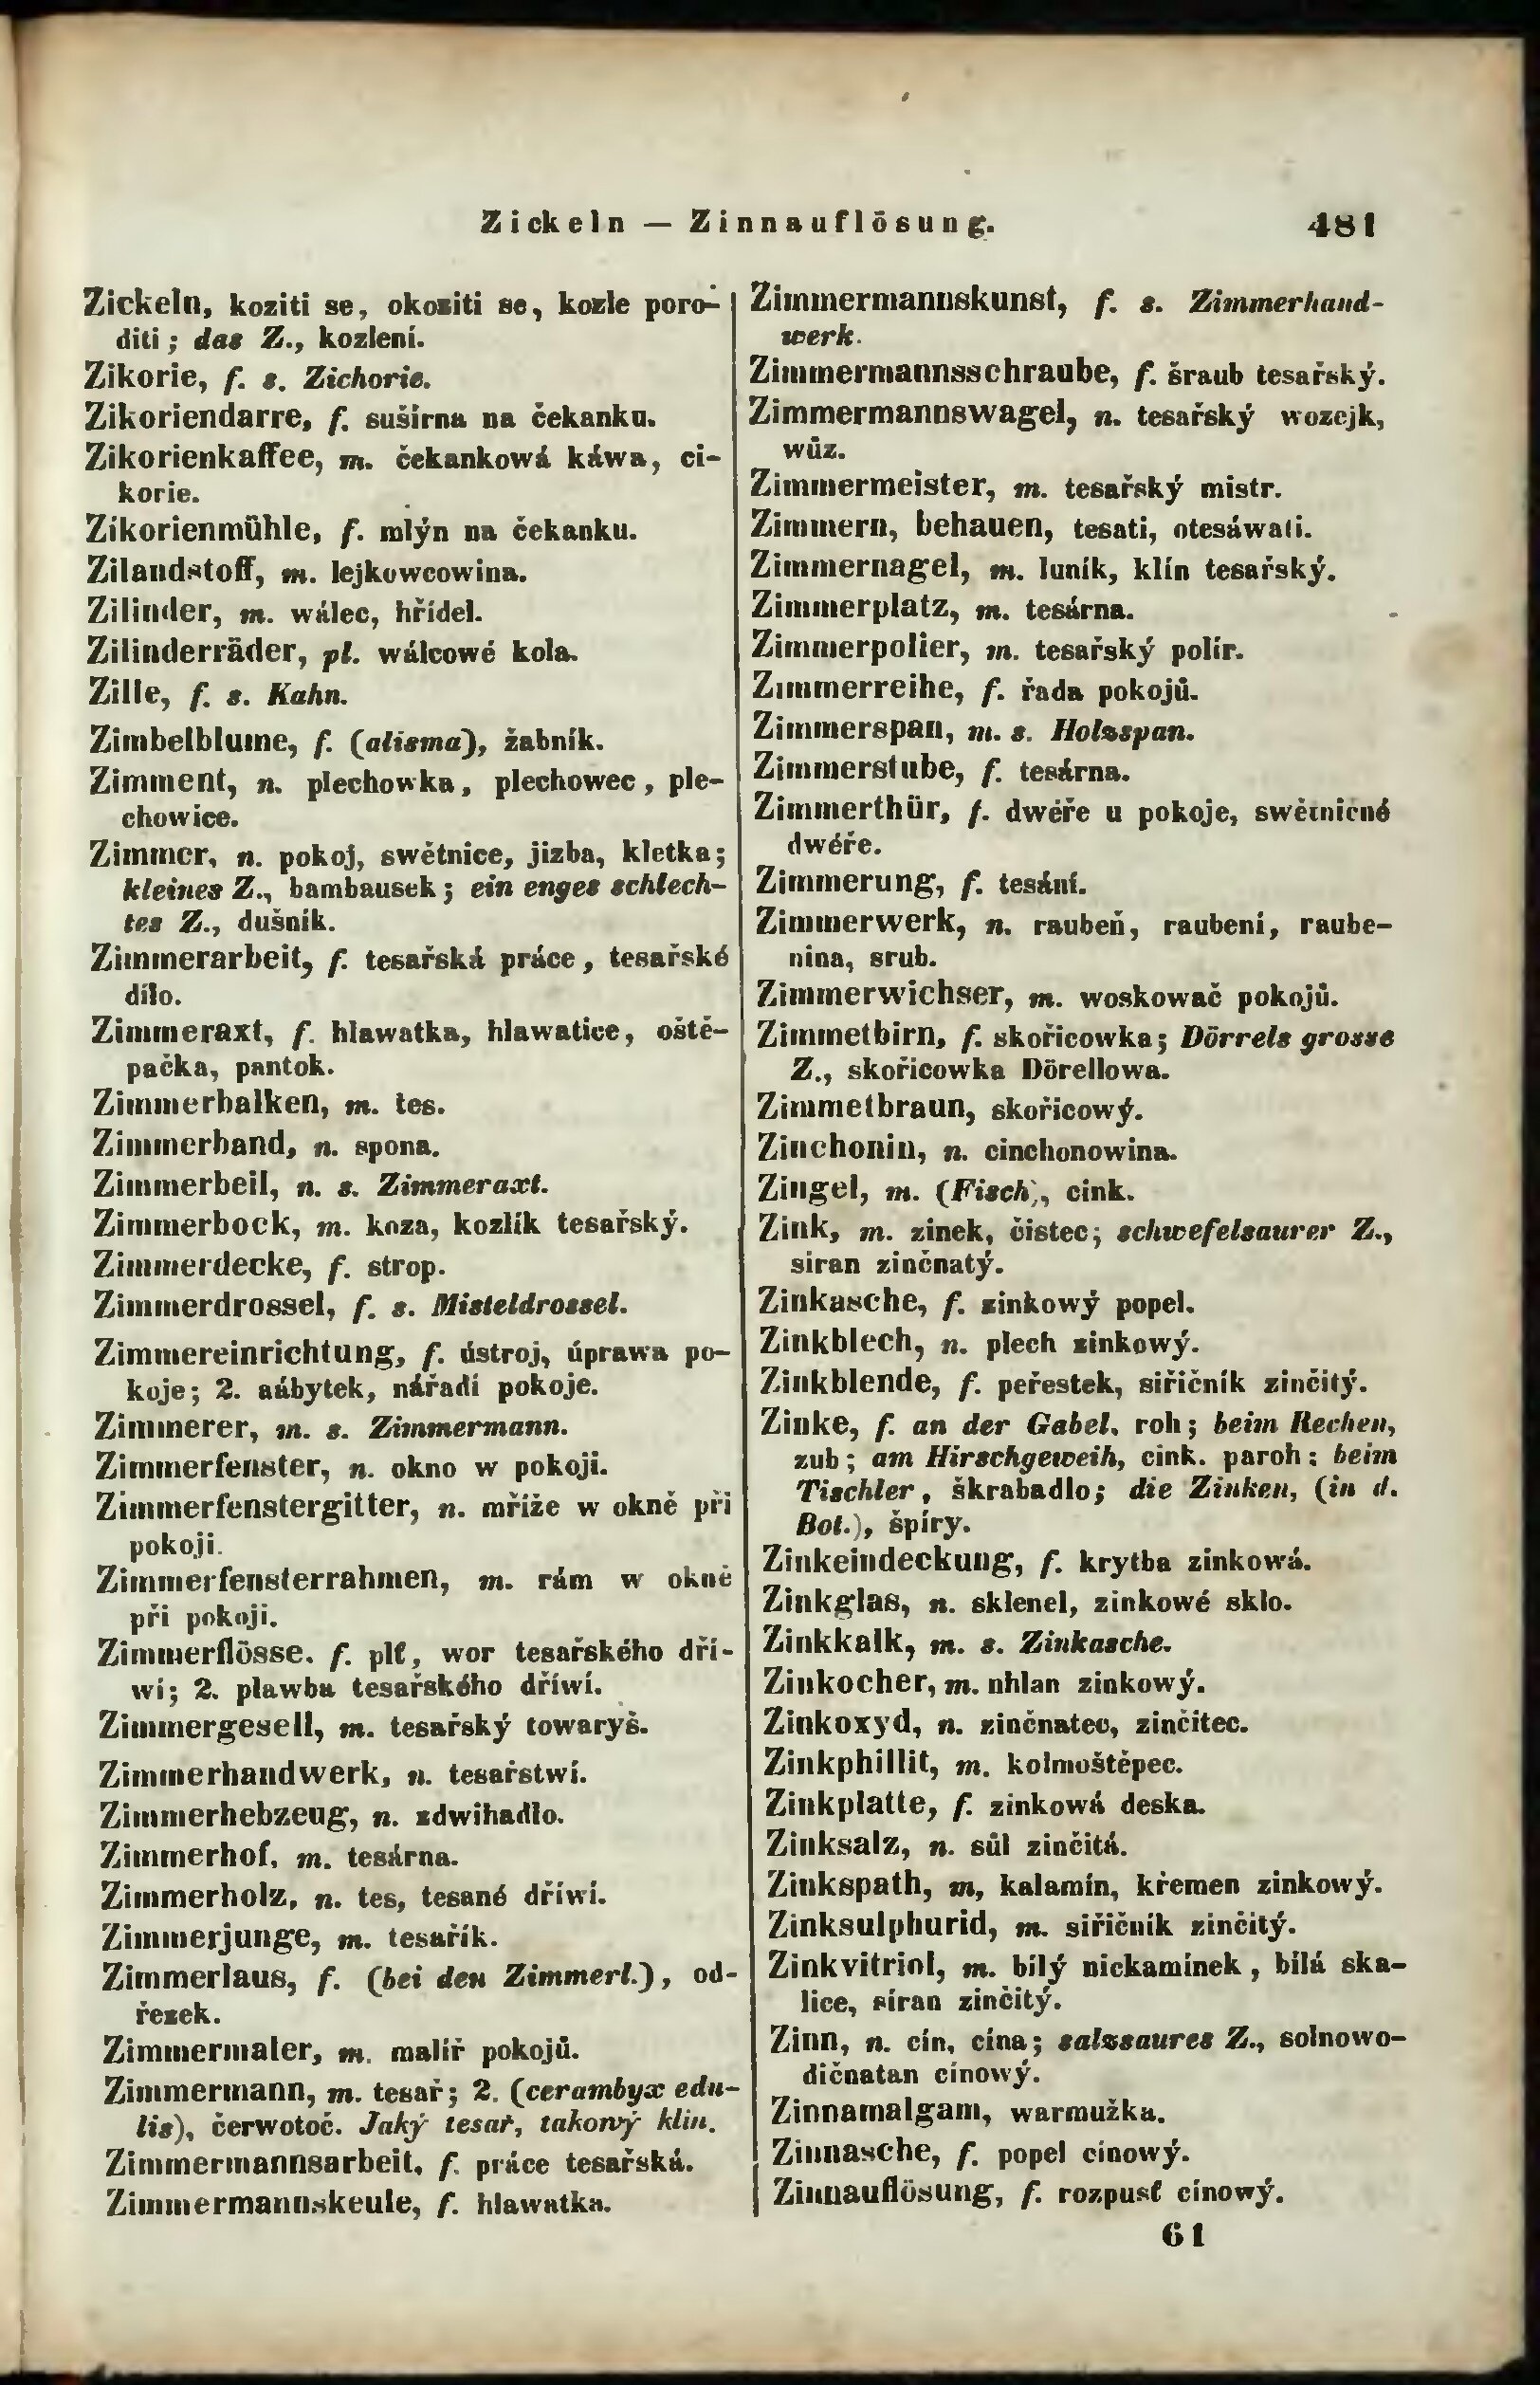 Zickeln — Zinnauflösung. 481
Zickeln, koziti se, okoziti se, kozle poro-
diti; das Z., kozlení.
Zikorie, f. s. Zichorie.
Zikoriendarre, f. sušírna na čekanku.
Zikorienkaffee, m. čekankowá káwa, ci-
korie.
Zikorienmühle, f. mlýn na čekanku.
Zilandstoff, m. lejkowcowina.
Zilinder, m. wálec, hřídel.
Zilinderräder, pl. wálcowé kola.
Zille, f. s. Kahn.
Zimbelblume, f. (alisma), žabník.
Zimment, n. plechowka, plechowec, ple-
chowice.
Zimmer, n. pokoj, swětnice, jizba, kletka;
kleines Z., bambausek; ein enges schlech-
tes Z., dušník.
Zimmerarbeit, f. tesařská práce, tesařské
dílo.
Zimmeraxt, f. hlawatka, hlawatice, oště-
pačka, pantok.
Zimmerbalken, m. tes.
Zimmerband, n. spona.
Zimmerbeil, n. s. Zimmeraxt.
Zimmerbock, m. koza, kozlík tesařský.
Zimmerdecke, f. strop.
Zimmerdrossel, f. s. Misteldrossel.
Zimmereinrichtung, f. ústroj, úprawa po-
koje; 2. aábytek, nářadí pokoje.
Zimmerer, m. s. Zimmermann.
Zimmerfenster, n. okno w pokoji.
Zimmerfenstergitter, n. mříže w okně při
pokoji.
Zimmerfensterrahmen, m. rám w okně
při pokoji.
Zimmerflösse. f. plť, wor tesařského dří-
wí; 2. plawba tesařského dříwí.
Zimmergesell, m. tesařský towaryš.
Zimmerhandwerk, n. tesařstwí.
Zimmerhebzeug, n. zdwihadlo.
Zimmerhof, m. tesárna.
Zimmerholz, n. tes, tesané dříwí.
Zimmerjunge, m. tesařík.
Zimmerlaus, f. (bei den Zimmerl.), od-
řezek.
Zimmermaler, m. malíř pokojů.
Zimmermann, m. tesař; 2. (cerambyx edu-
lis), čerwotoč. Jaký tesař, takowý klín.
Zimmermannsarbeit, f. práce tesařská.
Zimmermannskeule, f. hlawatka.
Zimmermannskunst, f. s. Zimmerhand-
werk.
Zimmermannsschraube, f. šraub tesařský.
Zimmermannswagel, n. tesařský wozejk,
wůz.
Zimmermeister, m. tesařský mistr.
Zimmern, behauen, tesati, otesáwati.
Zimmernagel, m. luník, klín tesařský.
Zimmerplatz, m. tesárna.
Zimmerpolier, m. tesařský polír.
Zimmerreihe, f. řada pokojů.
Zimmerspan, m. s. Holzspan.
Zimmerstube, f. tesárna.
Zimmerthür, f. dwéře u pokoje, swětničné
dwéře.
Zimmerung, f. tesání.
Zimmerwerk, n. raubeň, raubení, raube-
nina, srub.
Zimmerwichser, m. woskowač pokojů.
Zimmetbirn, f. skořicowka; Dörrels grosse
Z., skořicowka Dörellowa.
Zimmetbraun, skořicowý.
Zinchonin, n. cinchonowina.
Zingel, m. (Fisch), cink.
Zink, m. zinek, čistec; schwefelsaurer Z.,
síran zinčnatý.
Zinkasche, f. zinkowý popel.
Zinkblech, n. plech zinkowý.
Zinkblende, f. peřestek, siřičník zinčitý.
Zinke, f. an der Gabel, roh; beim Rechen,
zub; am Hirschgeweih, cink. paroh; beim
Tischler, škrabadlo; die Zinken, (in d.
Bot.), špíry.
Zinkeindeckung, f. krytba zinkowá.
Zinkglas, n. sklenel, zinkowé sklo.
Zinkkalk, m. s. Zinkasche.
Zinkocher, m. nhlan zinkowý.
Zinkoxyd, n. zinčnatec, zinčitec.
Zinkphillit, m. kolmoštěpec.
Zinkplatte, f. zinkowá deska.
Zinksalz, n. sůl zinčitá.
Zinkspath, m, kalamín, křemen zinkowý.
Zinksulphurid, m. siřičník zinčitý.
Zinkvitriol, m. bílý nickamínek, bílá ska-
lice, síran zinčitý.
Zinn, n. cín, cína; salzsaures Z., solnowo-
dičnatan cínowý.
Zinnamalgam, warmužka.
Zinnasche, f. popel cínowý.
Zinnauflösung, f. rozpusť cínowý.
61